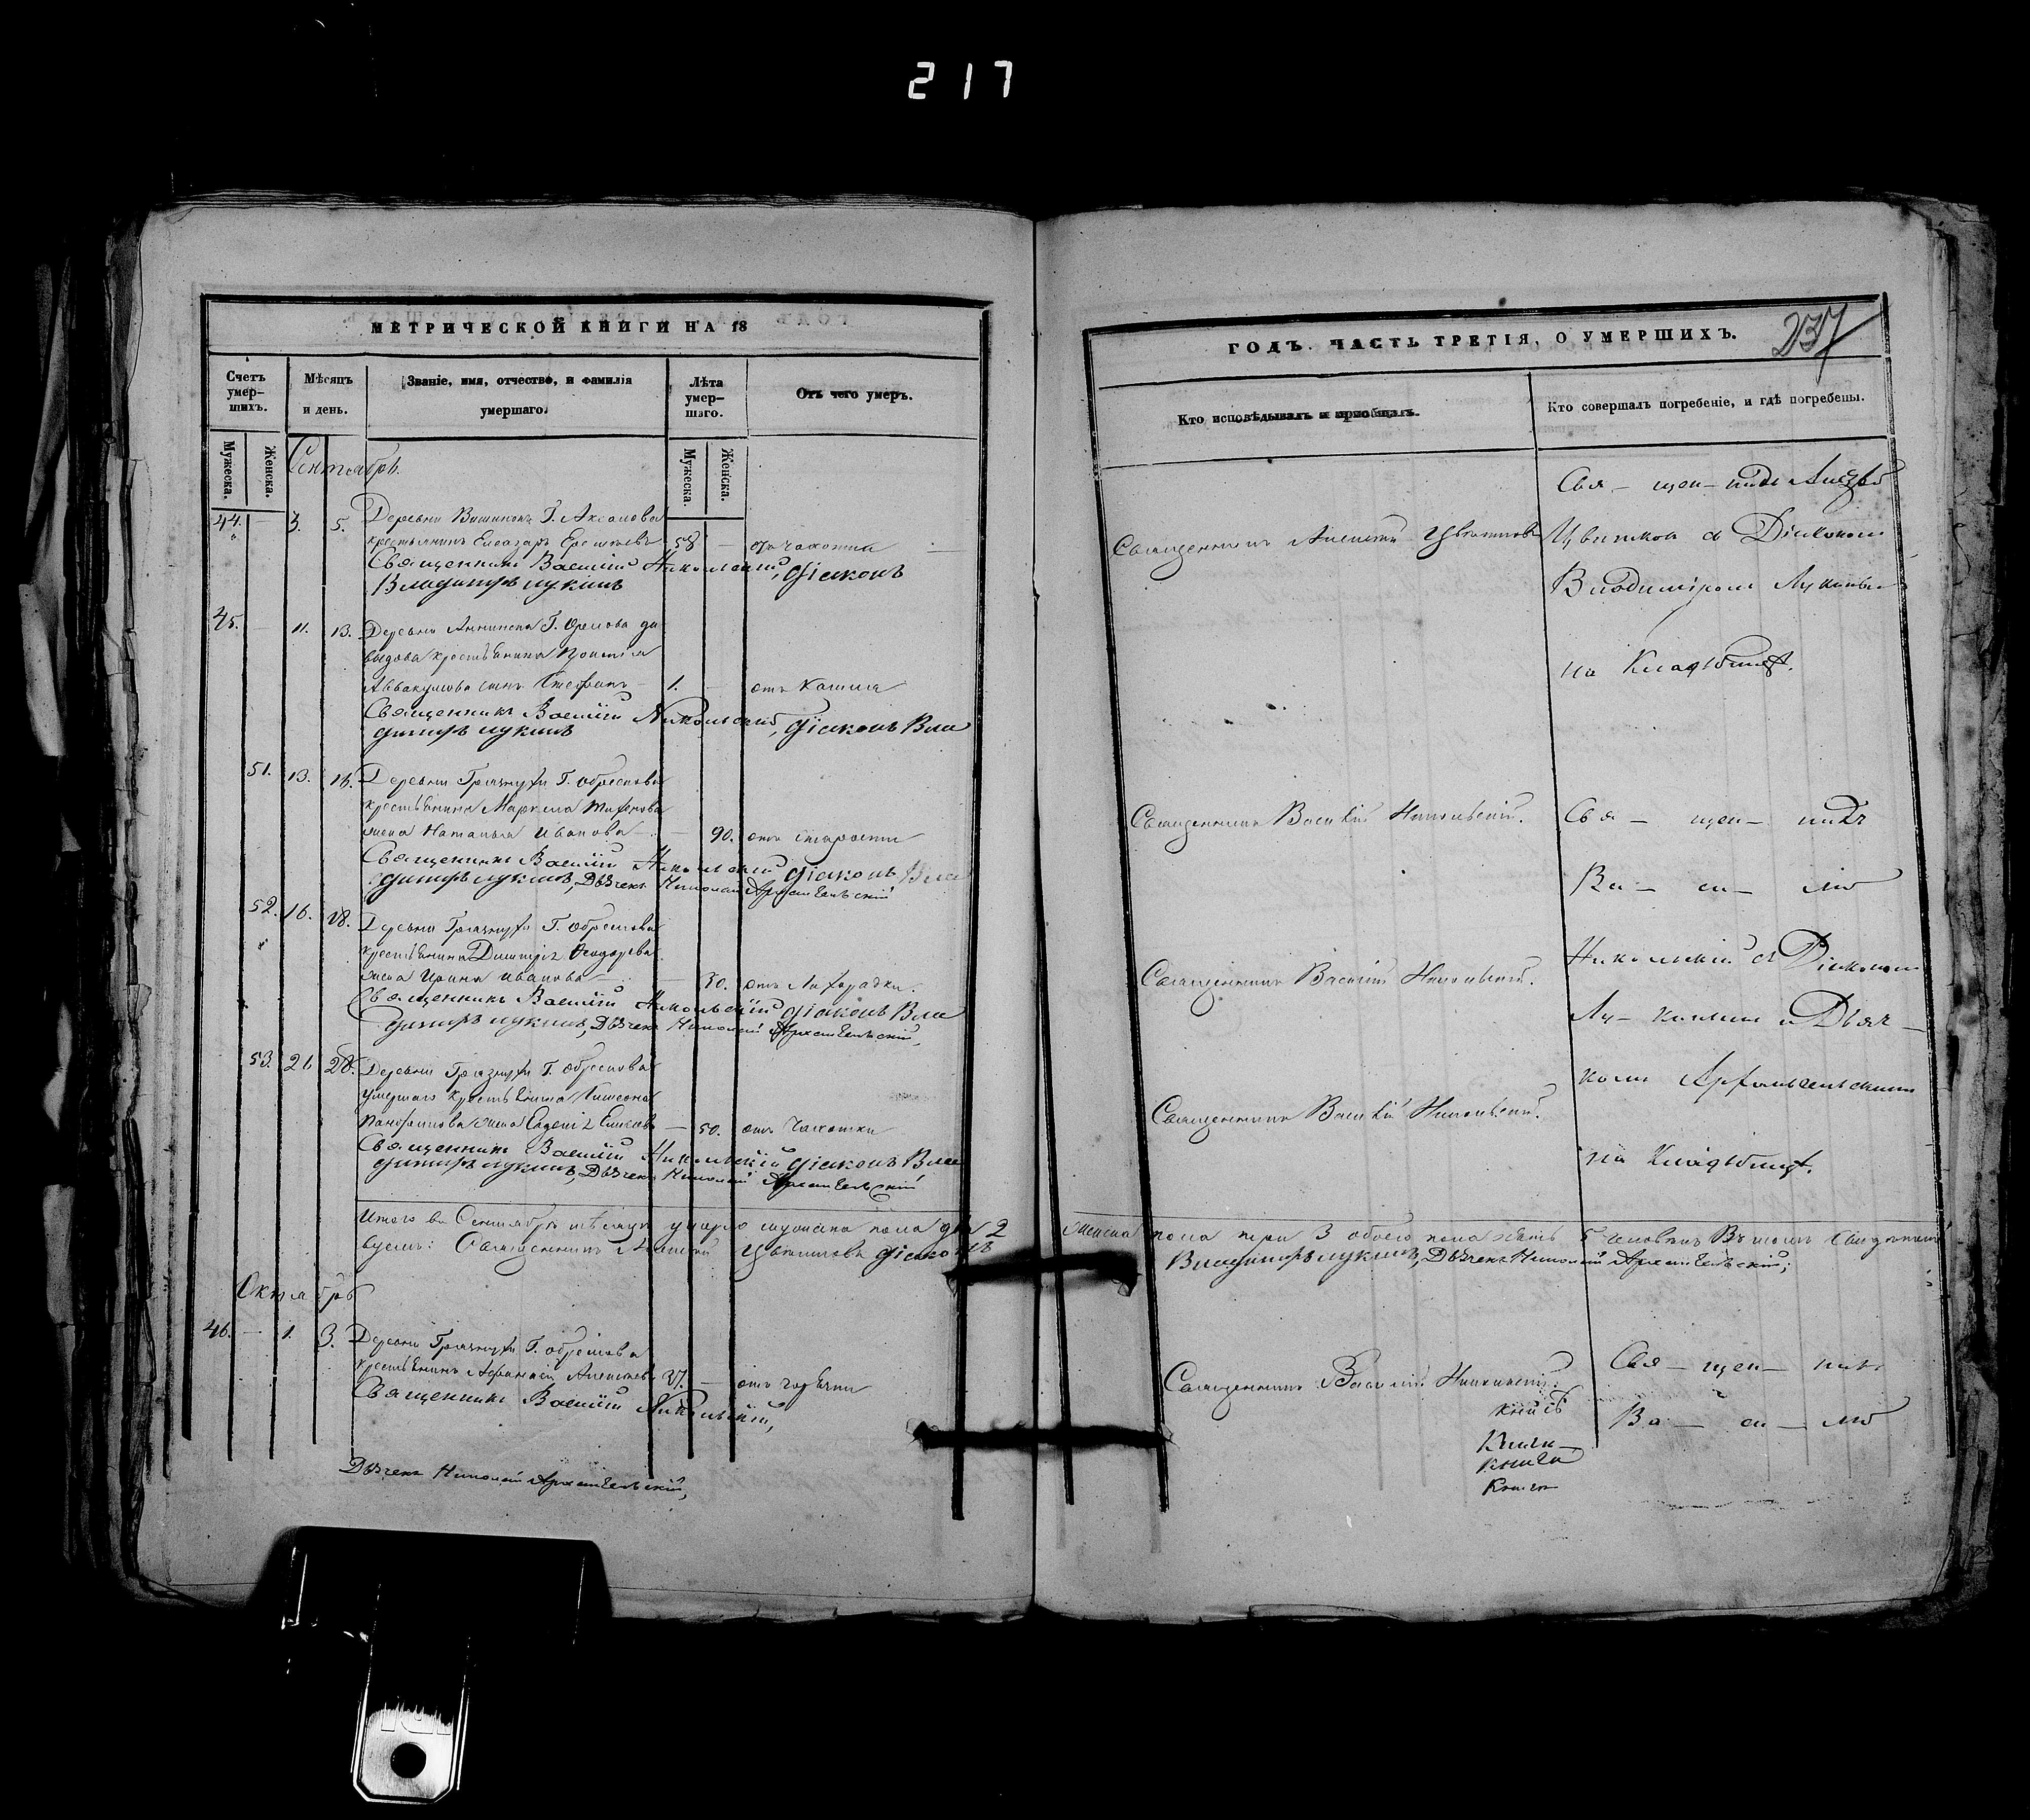 217
МЕТРИЧЕСКОЙ КНИГИ НА 18
Счетъ умер-шихъ.
Мѣсяцъ и день.
Званіе, имя, отчество, и фамилія умершаго.
Лѣта умер-шаго.
Отъ чего умеръ.
Мужеска.
Женска.
Мужеска.
Женска.
Сентябрь
44. 3. 5. Деревни Г. Аксакова
крестьянинъ Елеазаръ 58 отъ чахотки
Священникъ Василій Никольскій, Діаконъ
Владиміръ Лукинъ
45. 11. 13. Деревни Аннинска Г. Орлова Да
выдова крестьянина
Аввакумова сынъ Стефанъ 1. отъ кашля
Священникъ Василій Никольскій, Діаконъ Вла
диміръ Лукинъ
51. 13. 16. Деревни Грязнухи Г. Обрескова
крестьянина
жена Наталья Иванова 90. отъ старости
Священникъ Василій Никольскій Діаконъ Вла
диміръ Лукинъ, Дьячекъ Николай Архангельскій
52. 16. 18. Деревни Грязнухи Г. Обрескова
крестьянина Димитрія Ѳеодорова
жена Ирина Иванова 30. отъ лихорадки.
Священникъ Василій Никольскій Діаконъ Вла
диміръ Лукинъ, Дьячекъ Николай Архангельскій,
53. 26 28. Деревни Грязнухи Г. Обрескова
умершаго крестьянина
жена 50. отъ чахотки
Священникъ Василій Никольскій Діаконъ Вла
диміръ Лукинъ, Дьячекъ Николай Архангельскій
Итого въ Сентябрѣ мѣсяцѣ умерло мужеска пола два 2
Священникъ Алексѣй Цвѣтковъ Діаконъ
Октябрь
46. 1. 3. Деревни Грязнухи Г. Обрескова
крестьянинъ Аѳанасій 37. отъ горячки
Священникъ Василій Никольскій,
Дьячекъ Николай Архангельскій,
ГОДЪ. ЧАСТЬ ТРЕТІЯ, О УМЕРШИХЪ.
237
Кто исповѣдывалъ и пріобщалъ.
Кто совершалъ погребеніе, и гдѣ погребены.
Священникъ Алексѣй Цвѣтковъ
Свя- щен- никъ Алексѣй
Цвѣтковъ съ Діакономъ
Владиміромъ Лукинымъ
на Кладбищѣ.
Священникъ Василій Никольскій.
Свя- щен- никъ
Ва- си- лій
Священникъ Василій Никольскій.
Никольскій съ Діакономъ
Лу- кинымъ и Дьяч-
комъ Архангельскимъ
Священникъ Василій Никольскій.
на Кладбищѣ.
женска пола три 3 обоего пола пять 5 человѣкъ Въ томъ свидѣтель
Владиміръ Лукинъ, Дьячекъ Николай Архангельскій;
Священникъ Василій Никольскій.
Свя- щен- никъ
Ва- си- лій
Книги
Книги